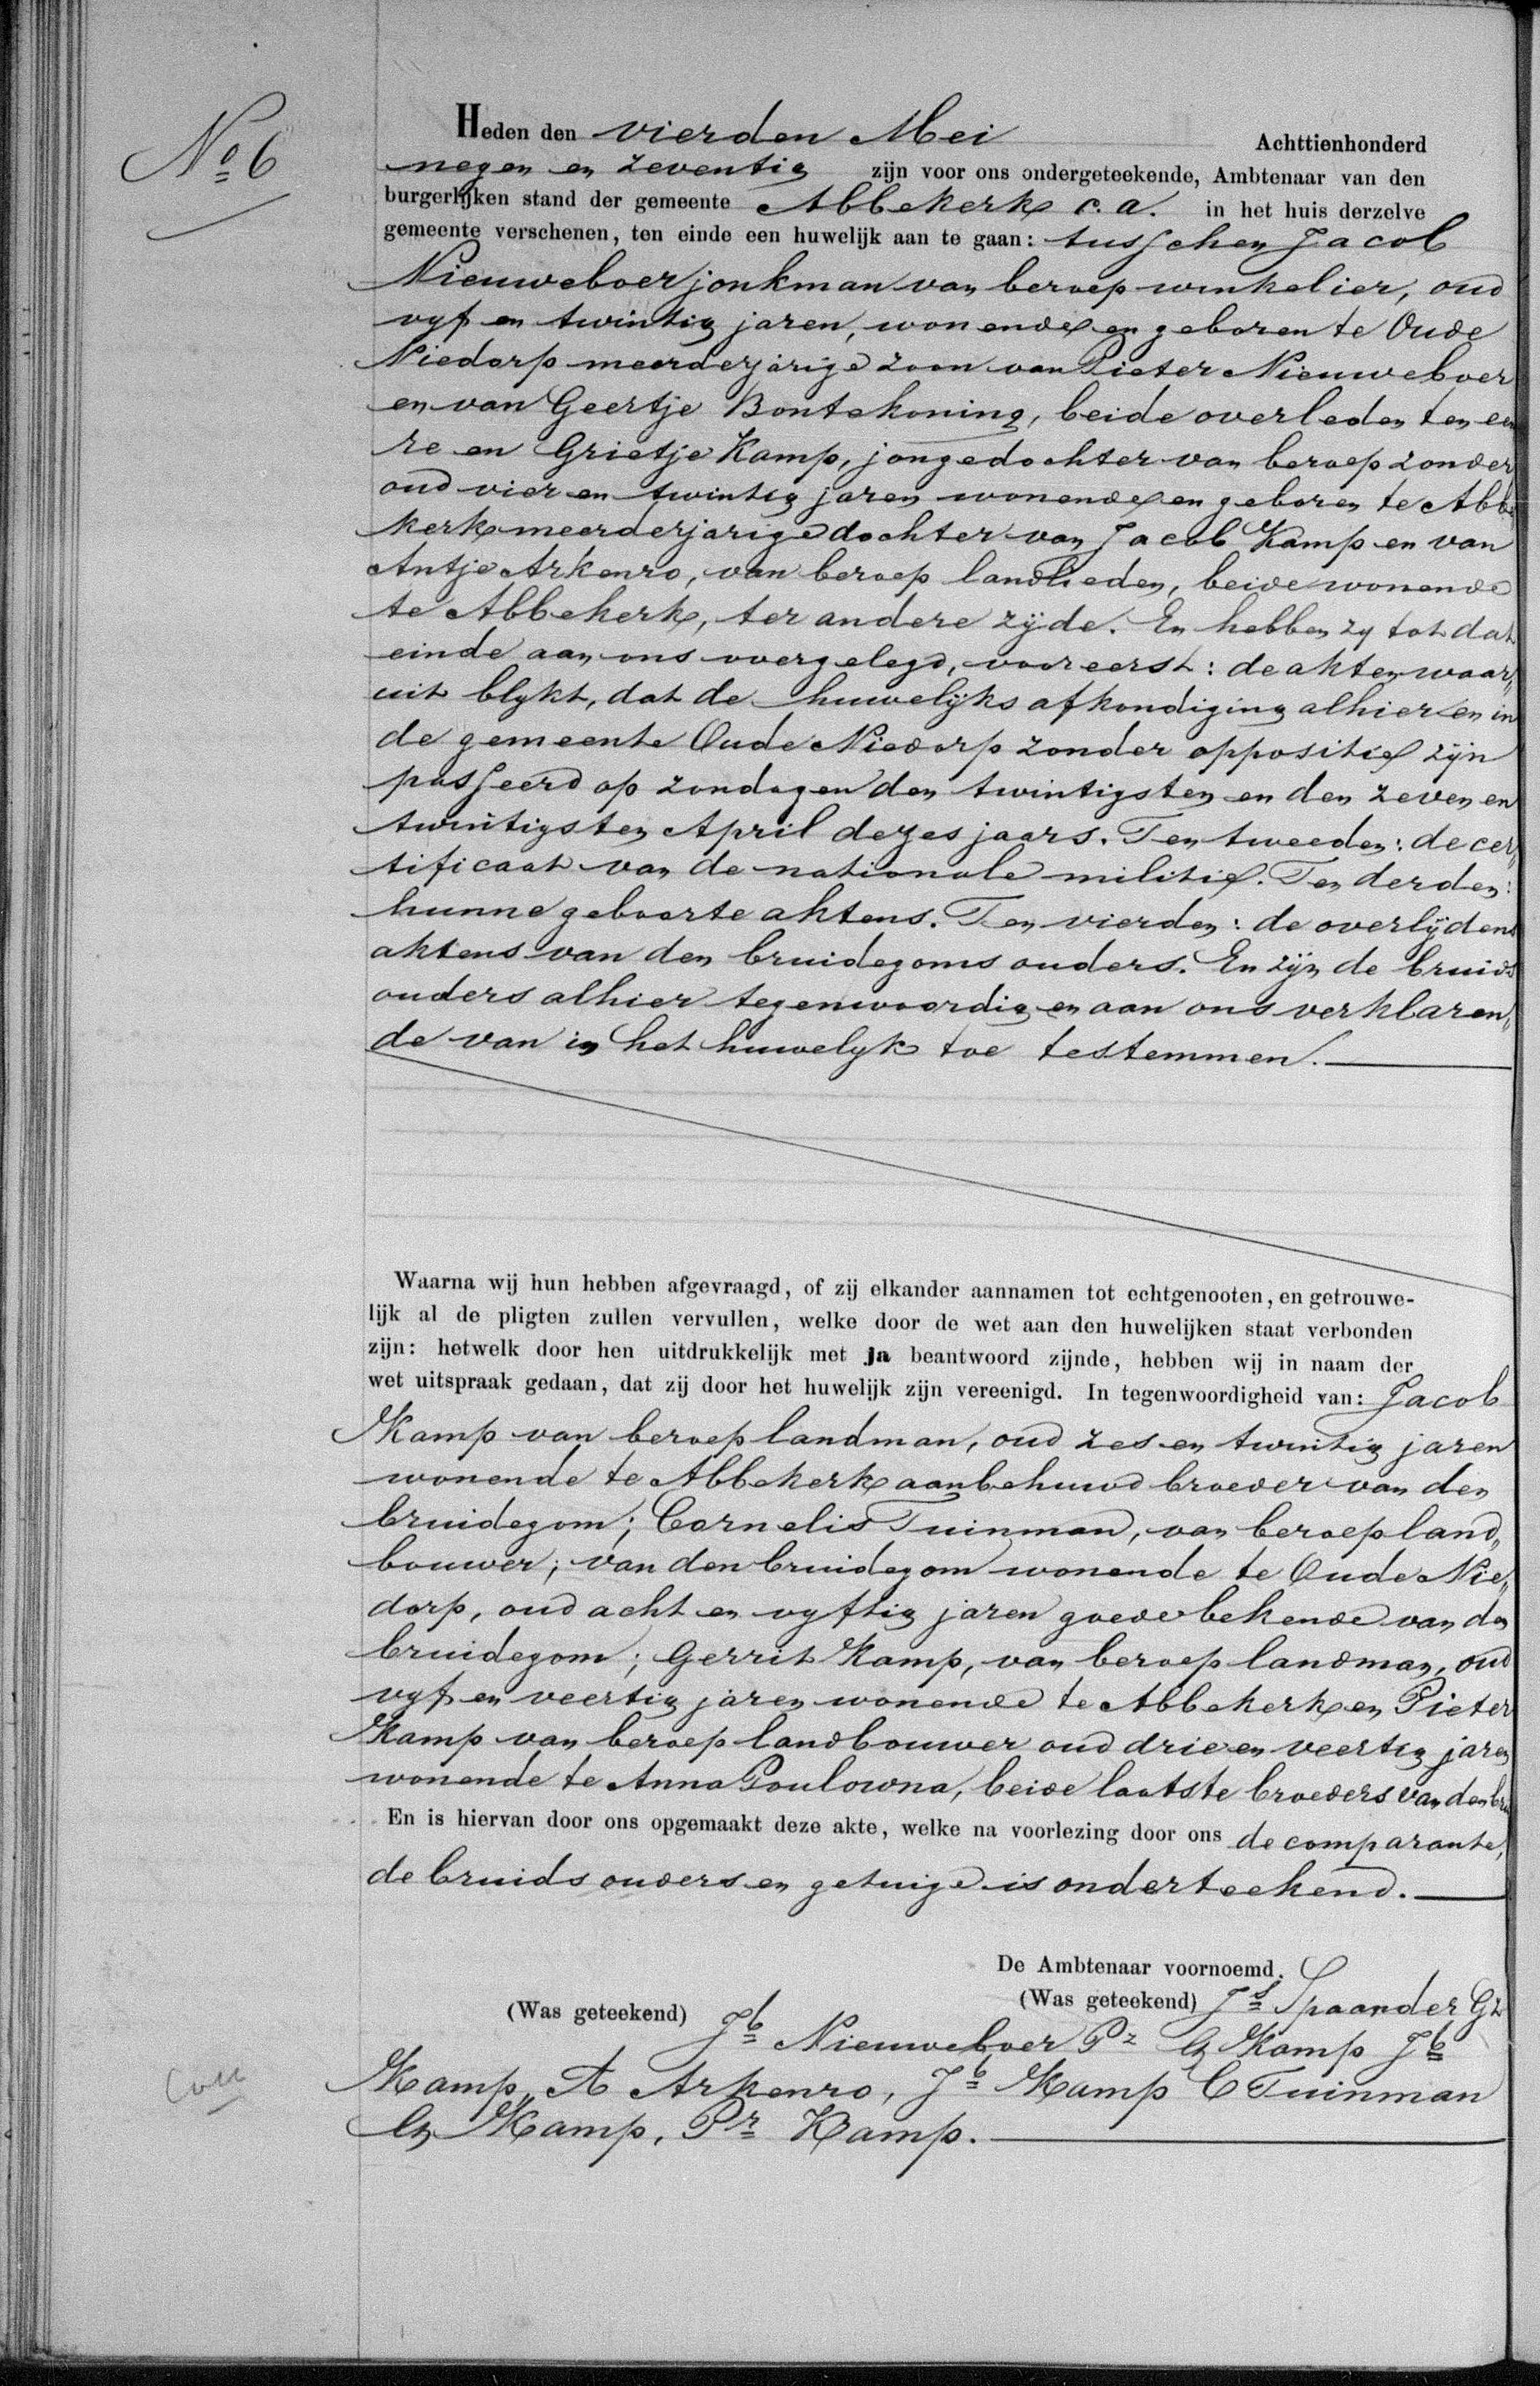 No 6
Heden den vierden Mei Achttienhonderd
negen en zeventig zijn voor ons ondergeteekende, Ambtenaar van den
burgerlijken stand der gemeente Abbekerk c.a. in het huis derzelve
gemeente verschenen, ten einde een huwelijk aan te gaan: tusschen Jacob
Nieuweboer jonkman van beroep winkelier, oud
vyf en twintig jaren, wonende en geboren te Oude
Niedorp meerderjarige zoon van Pieter Nieuweboer
en van Geertje Bontekoning, beide overleden ten een
re en Grietje Kamp, jongedochter van beroep zonder
oud vier en twintig jaren wonende en geboren te Abbe
kerk meerderjarige dochter van Jacob Kamp en van
Antje Arkenro, van beroep landlieden, beide wonende
te Abbekerk, ter andere zijde. En hebben zy tot dat
einde aan ons overgelegd, vooreerst: de akten waar„
uit blykt, dat de huwelijks afkondiging alhier en in
de gemeente Oude Niedorp zonder oppositie zijn
passeerd op zondagen den twintigsten en den zeven en
twintigsten April dezes jaars. Ten tweeden: de cer„
tificaat van de nationale militie. Ten derden:
hunne geboorte aktens. Ten vierden: de overlijdens
aktens van den bruidegoms ouders. En zijn de bruids
ouders alhier tegenwoordig en aan ons verklaren„
de van in het huwelyk toe testemmen.
Waarna wij hun hebben afgevraagd, of zij elkander aannamen tot echtgenooten, en getrouwe-
lijk al de pligten zullen vervullen, welke door de wet aan den huwelijken staat verbonden
zijn: hetwelk door hen uitdrukkelijk met ja beantwoord zijnde, hebben wij in naam der
wet uitspraak gedaan, dat zij door het huwelijk zijn vereenigd. In tegenwoordigheid van: Jacob
Kamp van beroep landman, oud zes en twintig jaren
wonende te Abbekerk aanbehuwd broeder van den
bruidegom; Cornelis Tuinman, van beroep land„
bouwer; van den bruidegom wonende te Oude Nie„
dorp, oud acht en vyftig jaren goede bekende van den
bruidegom; Gerrit Kamp, van beroep landman, oud
vyf en veertig jaren wonende te Abbekerk en Pieter
Kamp van beroep landbouwer oud drie en veertig jaren
wonende te Anna Poulowna, beide laatste broeders van den bru
En is hiervan door ons opgemaakt deze akte, welke na voorlezing door ons de comparante,
de bruids ouders en getuige is onderteekend.
De Ambtenaar voornoemd.
(Was geteekend) Js Spaander Gz
(Was geteekend) Jb Nieuweboer Pz G Kamp Jb
Kamp, A Arkenro, Jb Kamp C Tuinman
G Kamp, Pr Kamp.